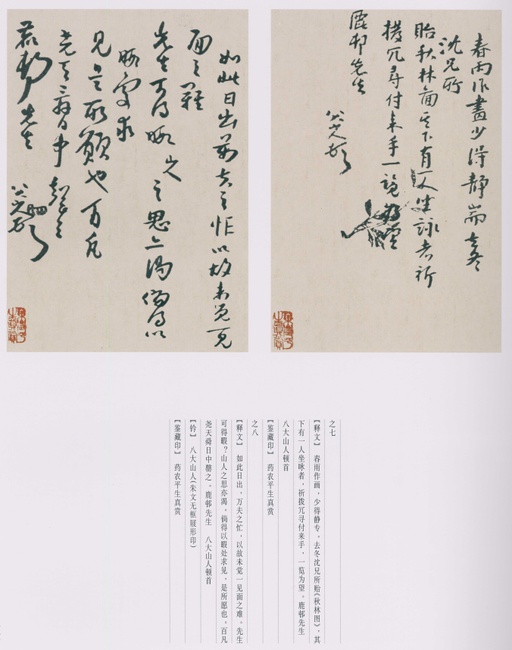 春雨作畫少得靜耑去冬
沈兄所
貽秋林圖其下有一人坐詠者祈
撥冗尋付來手一覽為望
鹿邨先生
八大山人
如此日出萬夫之忙以故未覓一見
面之難
先生可得暇山人之思亦渴倘得以
暇處求
見是所願也百凡
堯天舜日中
鹿邨先生 八大山人
之七
【释文】 春雨作画，少得静专，去冬沈兄所贻《秋林图》，其
下有一人坐咏者，祈拨冗寻付来手，一览为望。鹿邨先生
八大山人顿首
【鉴藏印】 药农平生真赏
之八
【释文】 如此日出，万夫之忙，以故未觉一见面之难。先生
可得暇？山人之思亦渴，倘得以暇处求见，是所愿也。百凡
尧天舜日中罄之。鹿邨先生 八大山人顿首
【钤】 八大山人（朱文无框屐形印）
【鉴藏印】 药农平生真赏